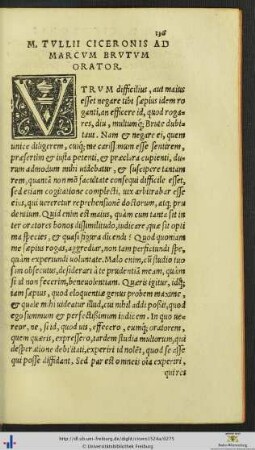 M. TVLLII CICERONIS AD
MARCVM BRVTVM
ORATOR.
VTRVM difficilius, aut maius
esset negare tibi sæpius idem ro
ganti, an efficere id, quod roga-
res, diu, multumq́; Brute dubi
taui. Nam & negare ei, quem
unice diligerem, cuiq́; me cariss.mum esse sentirem,
præsertim & iusta petenti, & præclara cupienti, du-
rum admodum mihi uidebatur, & suscipere tantam
rem, quantā non mō facultate consequi difficile esset,
sed etiam cogitatione complecti, uix arbitrabar esse
eius, qui uereretur reprehensionē doctorum, atq; pru
dentium. Quid enim est maius, quàm cum tanta sit in
ter oratores bonos dissimilitudo, iudicare, quæ sit opti
ma species, & quasi figura dicendi? Quod quoniam
me sæpius rogas, aggrediar, non tam perficiundi spe,
quàm experiundi uoluntate. Malo enim, cū studio tuo
sim obsecutus, desiderari à te prudentiā meam, quàm
si id non fecerim, beneuolentiam. Quæris igitur, idq́;
iam sæpius, quod eloquentiæ genus probem maxime,
& quale mihi uideatur illud, cui nihil addi possit, quod
ego summum & perfectissimum iudicem. In quo ue-
reor, ne, si id, quod uis, effecero, eumq́; oratorem,
quem quæris, expressero, tardem studia multorum, qui
desperatione debilitati, experiri id nolēt, quod se asse
qui posse diffidant. Sed par est omneis oīa experiri,
qui res
http://dl.ub.uni-freiburg.de/diglit/cicero1524a/0275
© Universitätsbibliothek Freiburg